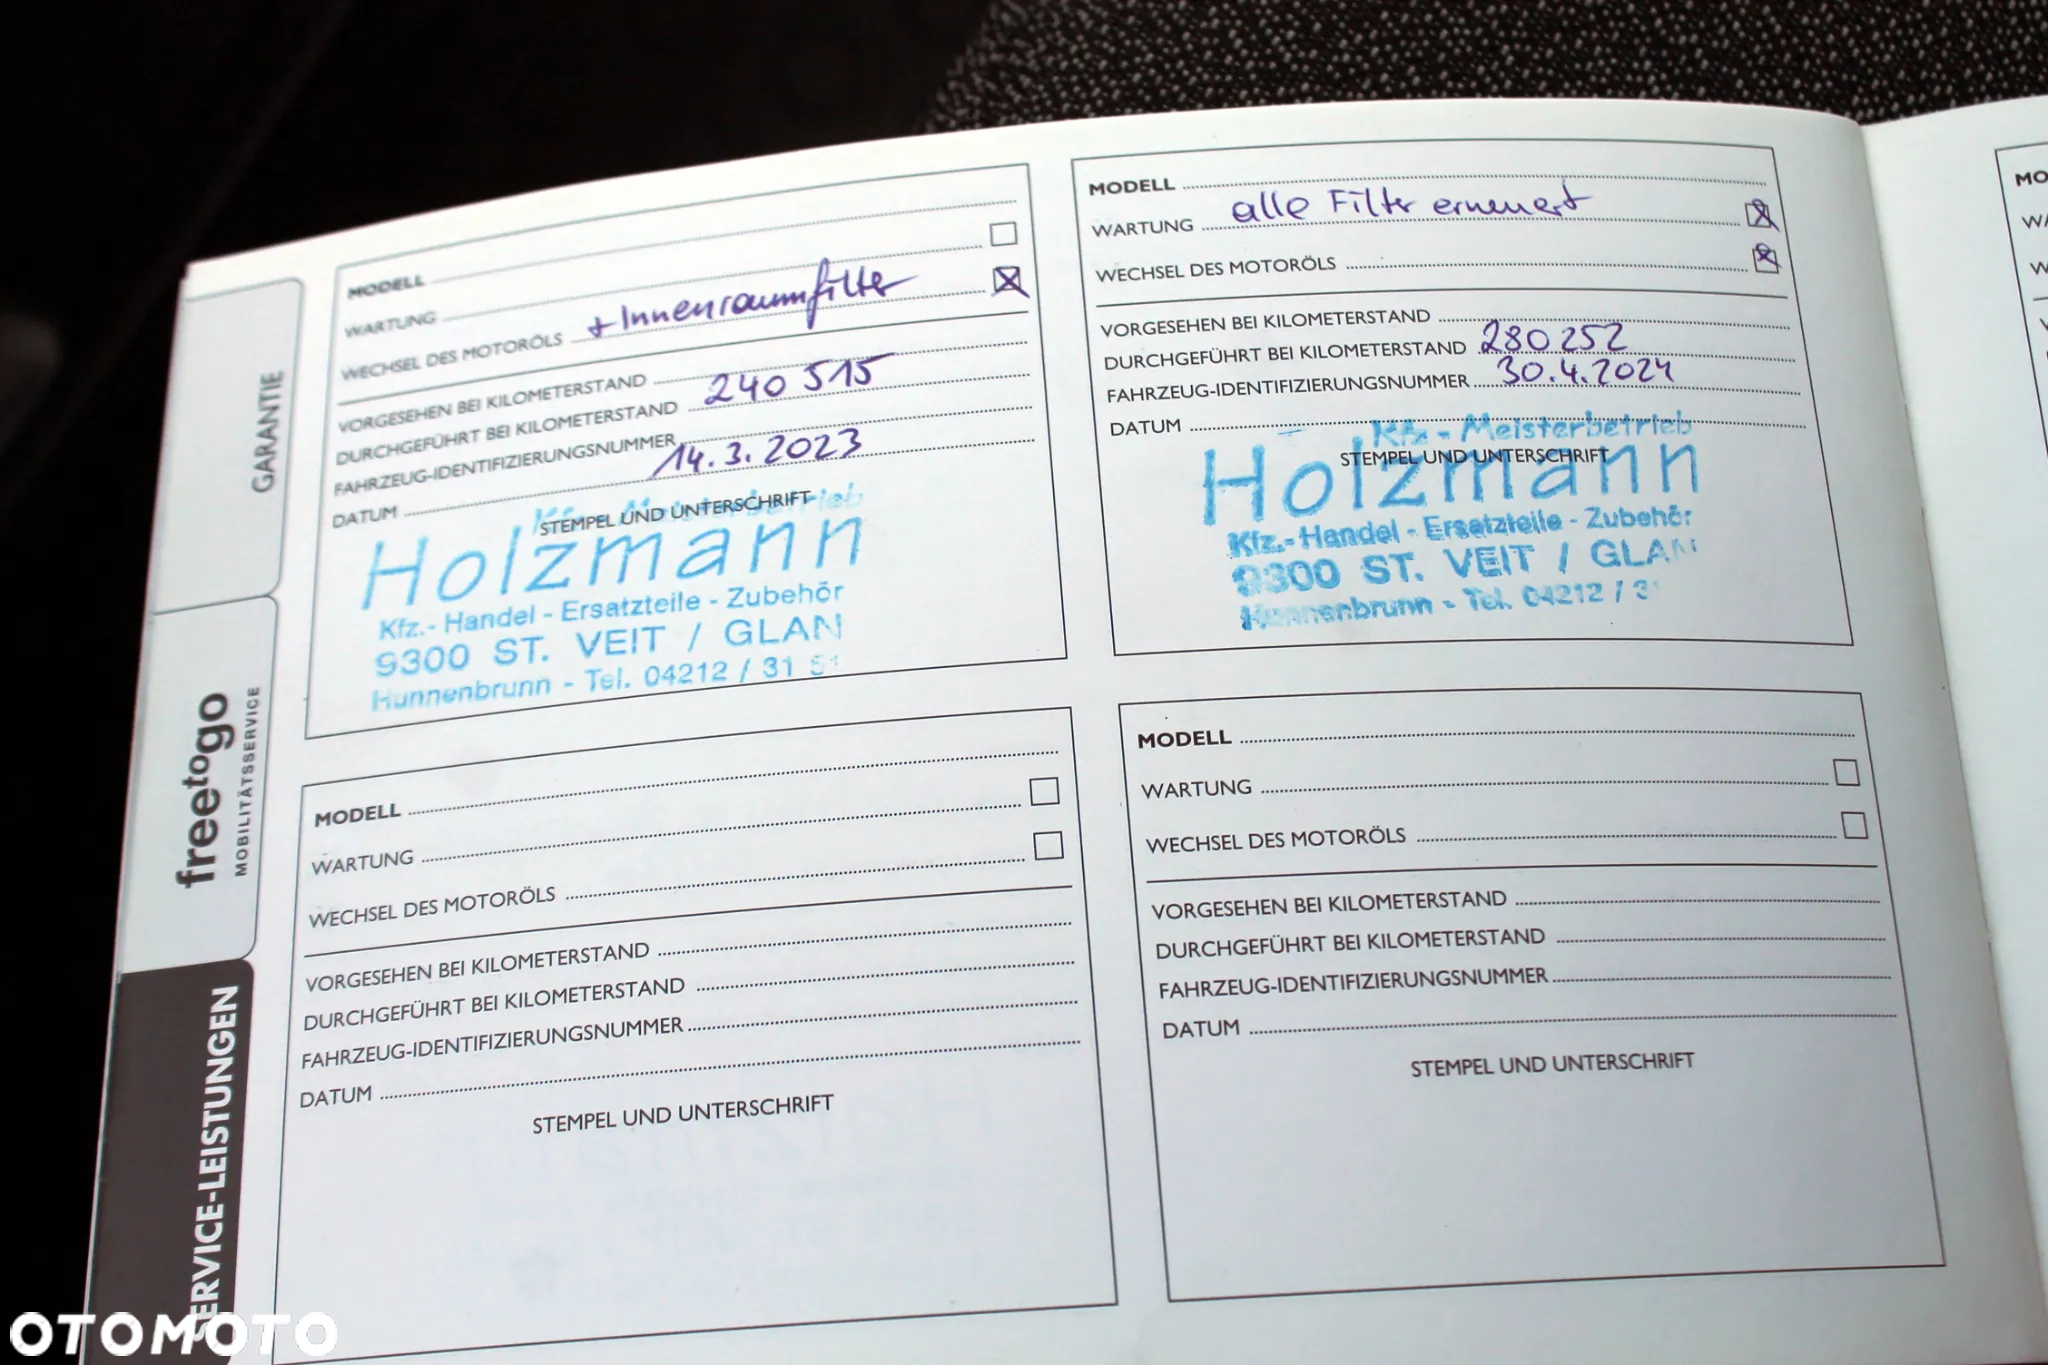 GARANTIE
freetogo
MOBILITÄTSSERVICE
SERVICE-LEISTUNGEN
MODELL
WARTUNG
WECHSEL DES MOTORÖLS + Innenraumfilter
VORGESEHEN BEI KILOMETERSTAND
DURCHGEFÜHRT BEI KILOMETERSTAND 240 515
FAHRZEUG-IDENTIFIZIERUNGSNUMMER
DATUM 14.3.2023
STEMPEL UND UNTERSCHRIFT
Kfz - Meisterbetrieb
Holzmann
Kfz.- Handel - Ersatzteile - Zubehör
9300 ST. VEIT / GLAN
Hunnenbrunn - Tel. 04212 / 31 51
MODELL
WARTUNG alle Filter erneuert
WECHSEL DES MOTORÖLS
VORGESEHEN BEI KILOMETERSTAND
DURCHGEFÜHRT BEI KILOMETERSTAND 280 252
FAHRZEUG-IDENTIFIZIERUNGSNUMMER 30.4.2024
DATUM
Kfz - Meisterbetrieb
STEMPEL UND UNTERSCHRIFT
Holzmann
Kfz.- Handel - Ersatzteile - Zubehör
9300 ST. VEIT / GLAN
Hunnenbrunn - Tel. 04212 / 3
MODELL
WARTUNG
WECHSEL DES MOTORÖLS
VORGESEHEN BEI KILOMETERSTAND
DURCHGEFÜHRT BEI KILOMETERSTAND
FAHRZEUG-IDENTIFIZIERUNGSNUMMER
DATUM
STEMPEL UND UNTERSCHRIFT
MODELL
WARTUNG
WECHSEL DES MOTORÖLS
VORGESEHEN BEI KILOMETERSTAND
DURCHGEFÜHRT BEI KILOMETERSTAND
FAHRZEUG-IDENTIFIZIERUNGSNUMMER
DATUM
STEMPEL UND UNTERSCHRIFT
MO
WA
W
OTOMOTO